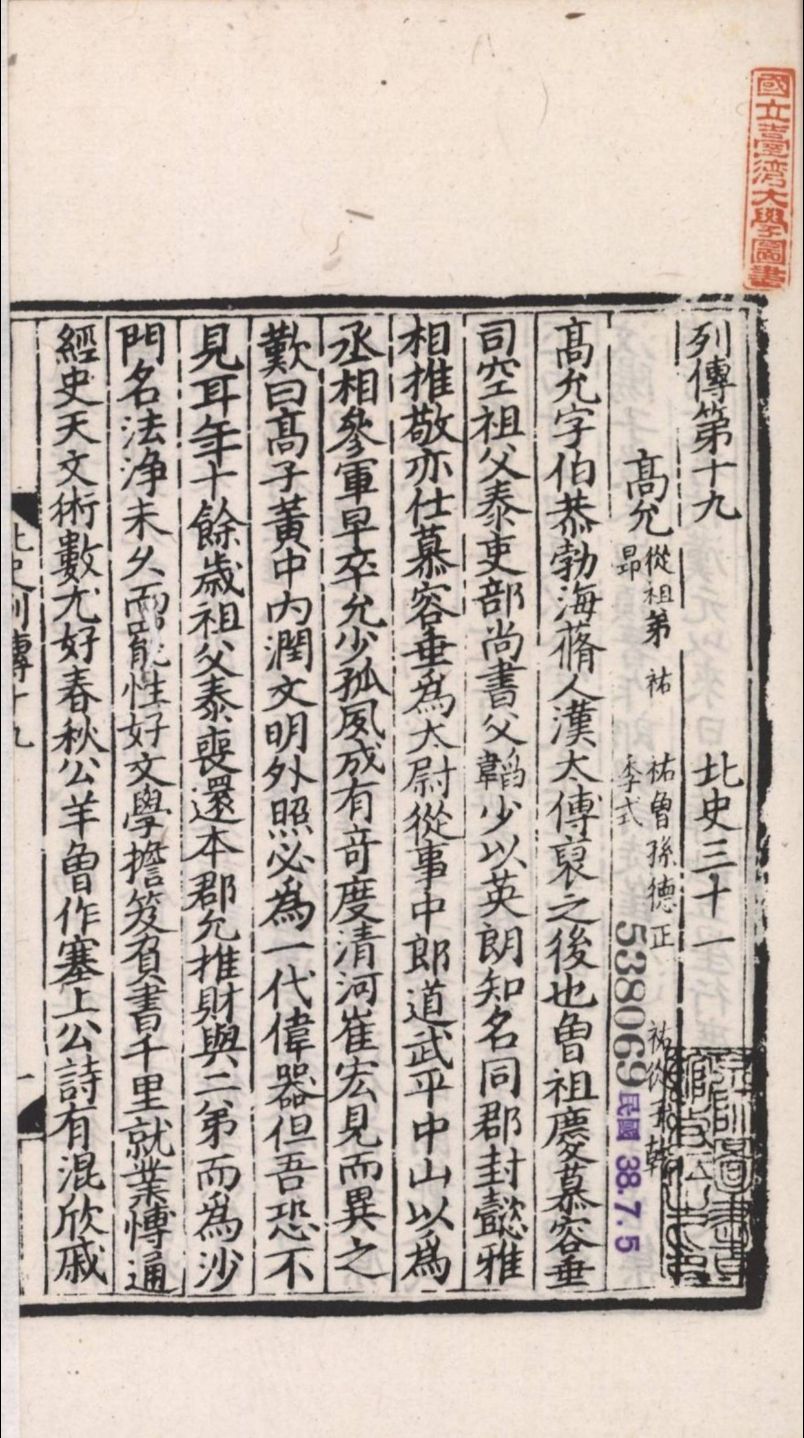 國立臺灣大學圖書
列傳第十九　北史三十一
高允 從祖弟祐 祐曾孫德正 祐從子乾
昂 季式
538069 民國 38.7.5
高允字伯恭勃海蓨人漢太傅裒之後也曾祖慶慕容垂
司空祖父泰吏部尚書父韜少以英朗知名同郡封懿雅
相推敬亦仕慕容垂爲太尉從事中郎道武平中山以爲
丞相參軍早卒允少孤夙成有奇度清河崔宏見而異之
歎曰高子黃中內潤文明外照必爲一代偉器但吾恐不
見耳年十餘歲祖父泰喪還本郡允推財與二弟而爲沙
門名法淨未久而罷性好文學擔笈負書千里就業博通
經史天文術數尤好春秋公羊曾作塞上公詩有混欣戚
北史列傳十九　一